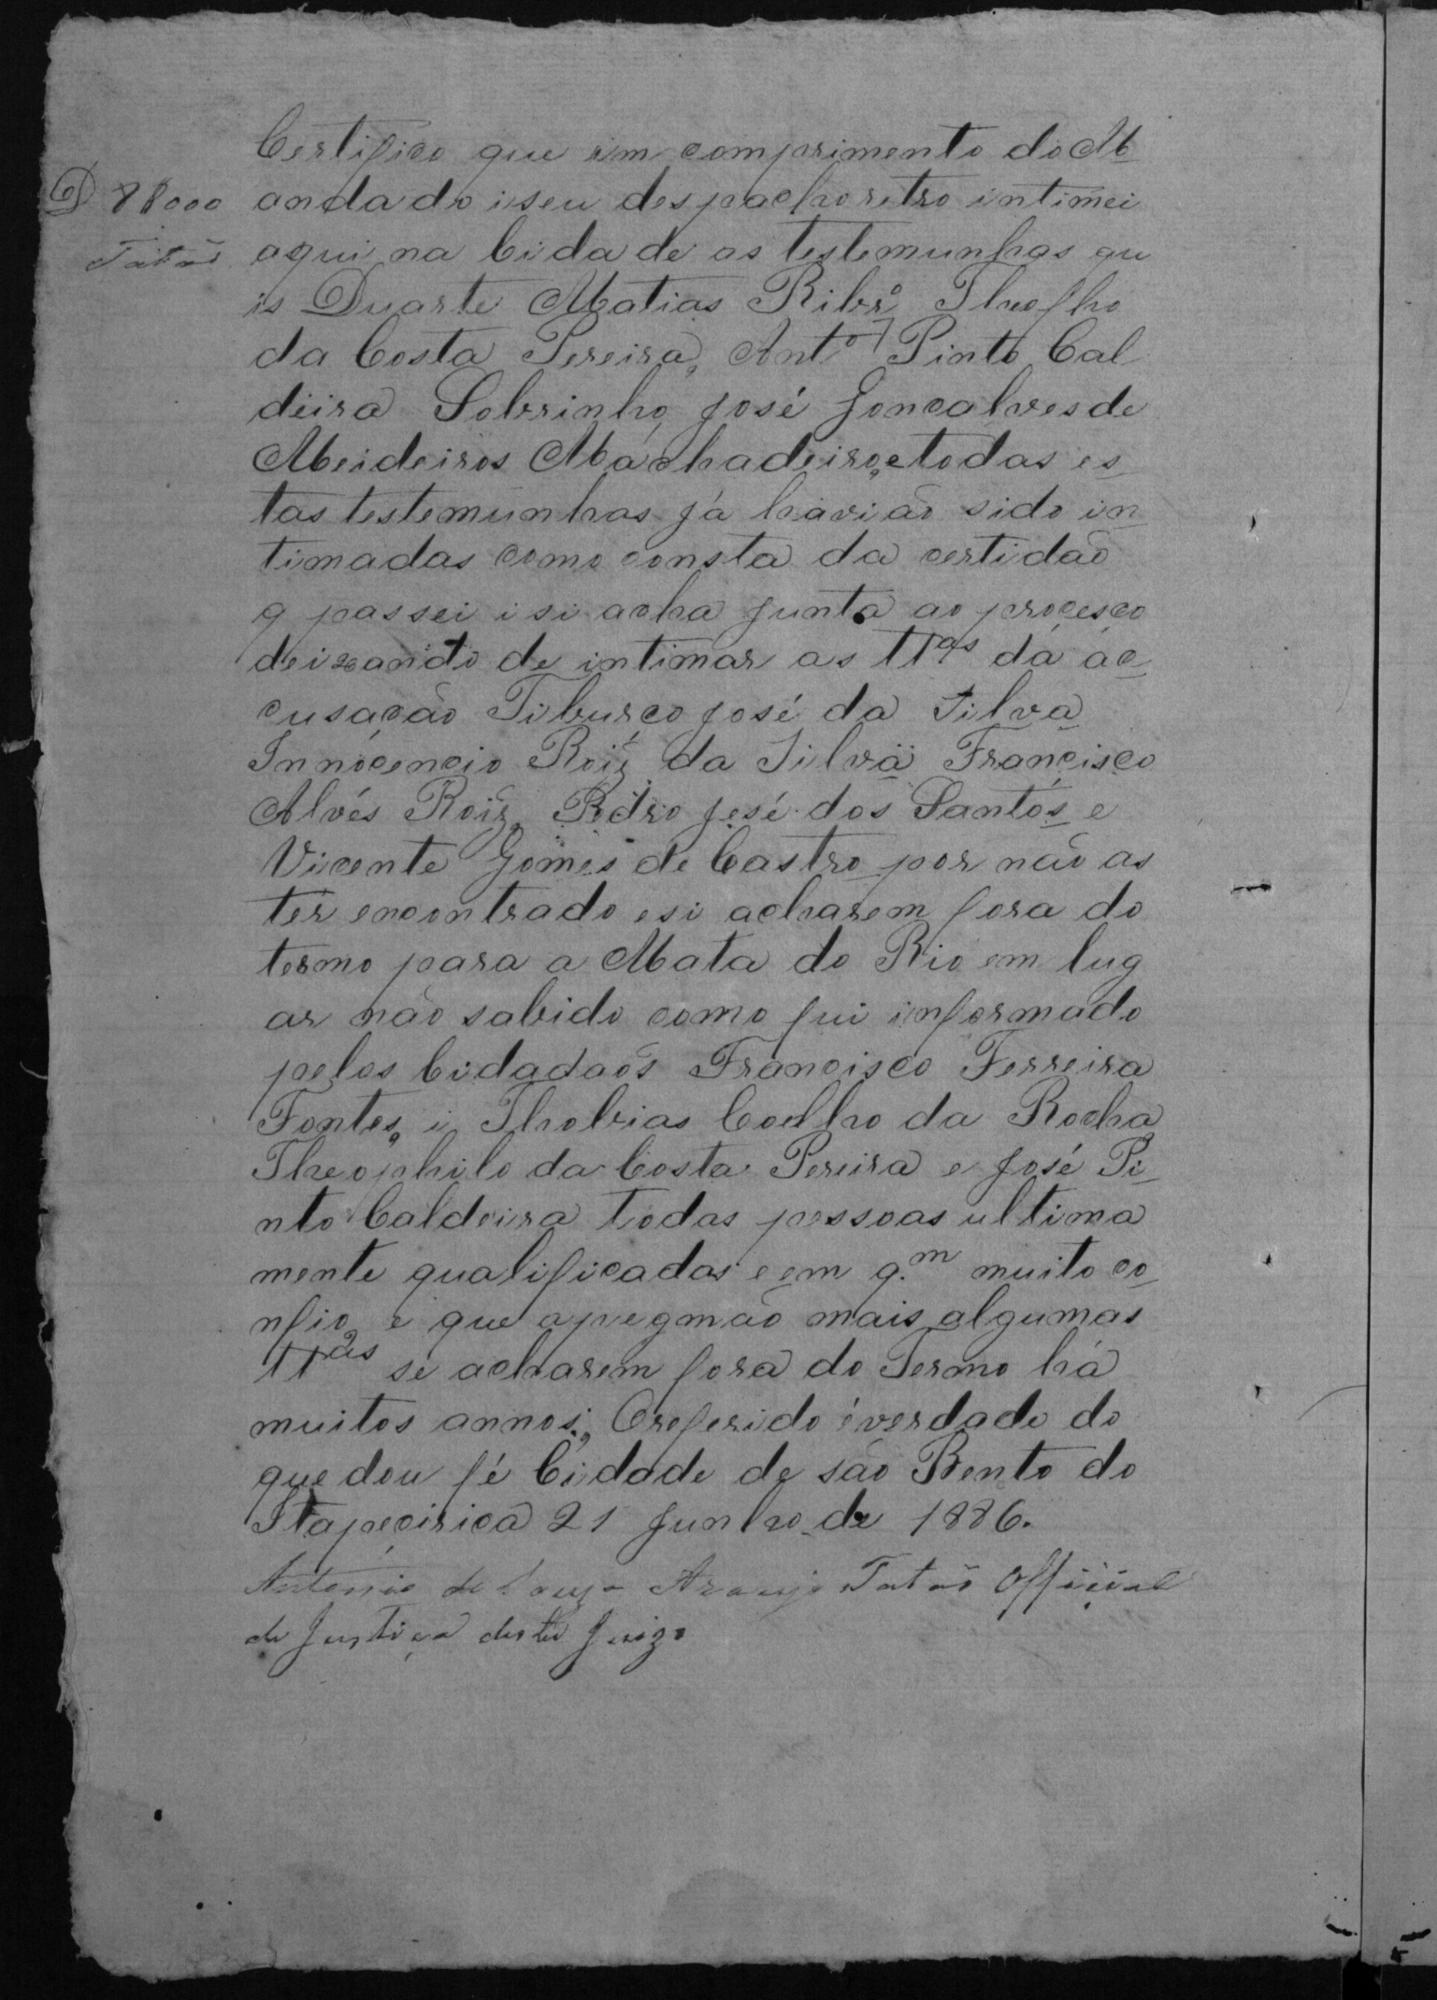 Certifico que em comprimento do M
D 88000 andado i seu despacho retro intimei
Tatão aqui na Cidade as testemunhas qu
is Duarte Matias Ribrº Theofho
da Costa Pereira, Antº Pinto Cal
deira Sobrinho, José Goncalves de
Meideiros Machadeiro, e todas es
tas testemunhas já havião sido in
timadas como consta da certidão
q passei i si acha junta ao proçesço
deixando de intimar as TTas da ac
cusação Tiburço José da Silva
Innocencio Roiz da Silva Françisço
Alvés Roiz, Pedro José dos Santos e
Vicente Gomes de Castro por não as
ter encontrado e si acharem fora do
termo para a Mata do Rio em lug
ar não sabido como fui informado
pelos Cidadaõs Francisco Ferreira
Fontes, i Thobias Coelho da Rocha
Theophilo da Costa Pereira e José Pi
nto Caldeira todas pessoas ultima
mente qualificadas e em q.m muito co
nfio, e que mais algumas
TTas se acharem fora do Termo há
muitos annos; O referido é verdade do
que dou fé Cidade de são Bento do
Itapeçirica 21 Junho de 1886.
Antonio de Souza Araujo Tatão Offiçial
de Justiça deste Juizo